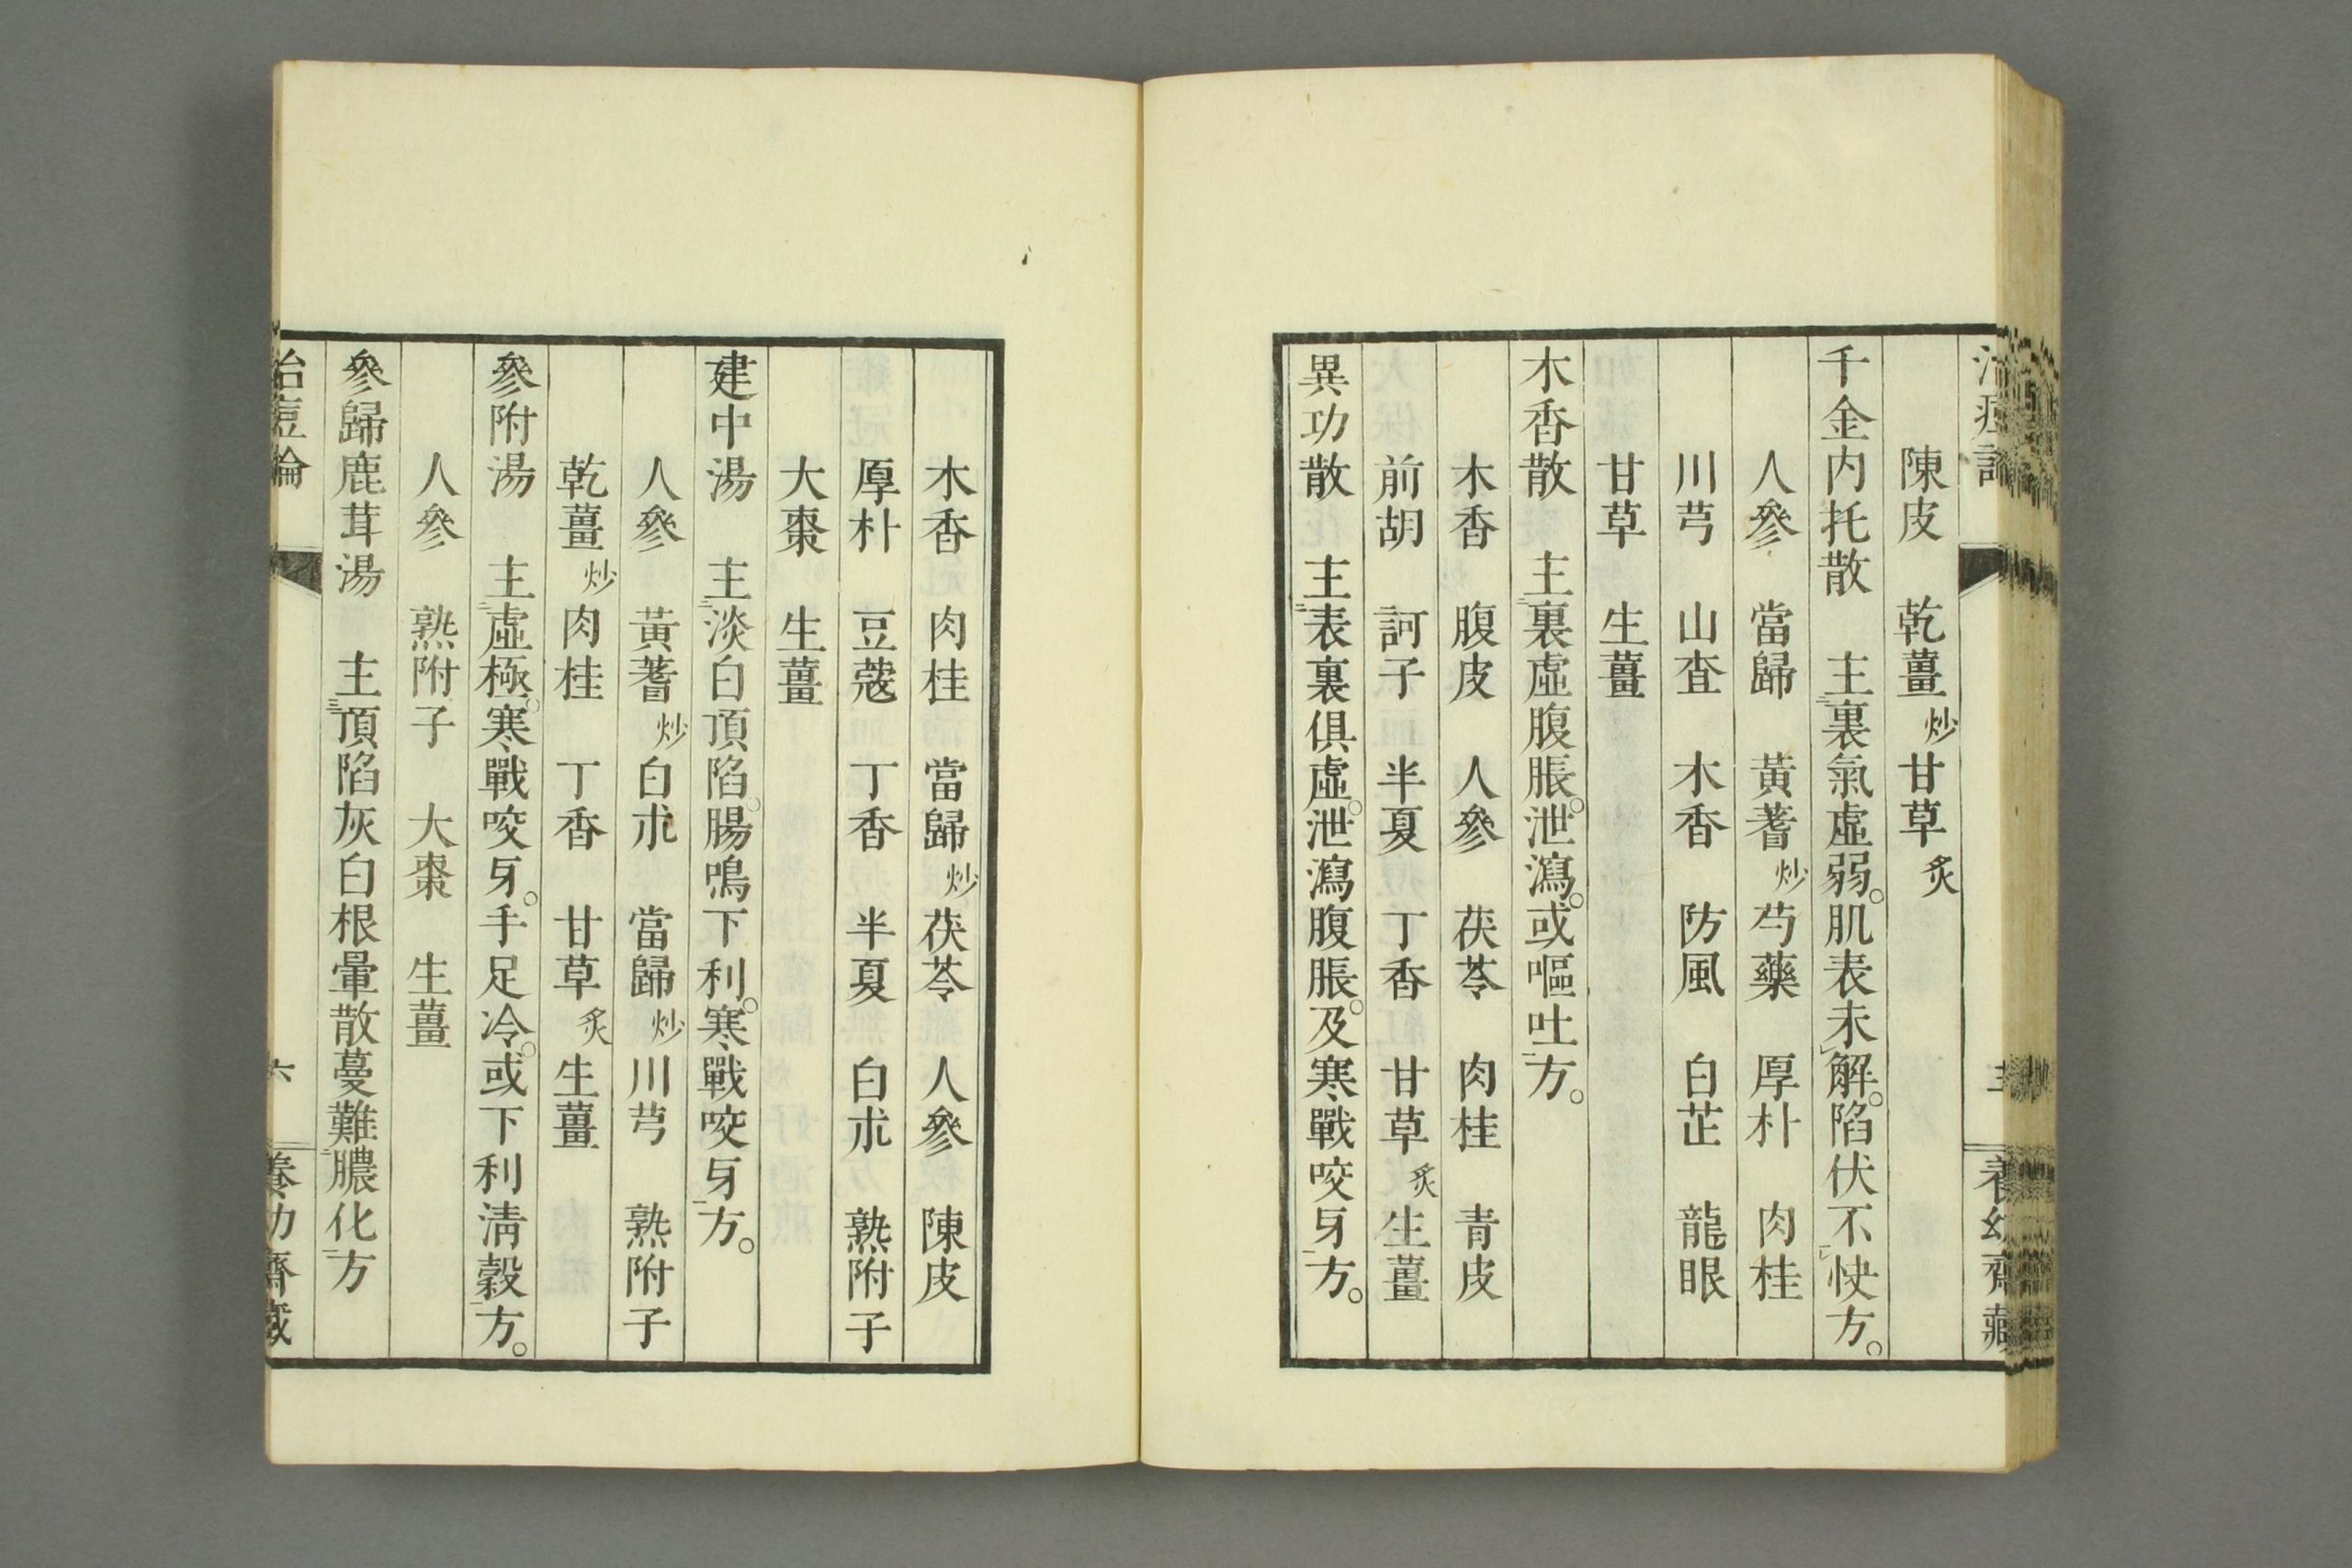 陳皮　乾薑炒　甘草炙
千金内托散　主裏氣虛弱。肌表未解。陷伏不快方。
人參　當歸　黃蓍炒　芍藥　厚朴　肉桂
川芎　山査　木香　防風　白芷　龍眼
甘草　生薑
木香散　主裏虛腹脹。泄瀉。或嘔吐方。
木香　腹皮　人參　茯苓　肉桂　青皮
前胡　訶子　半夏　丁香　甘草炙　生薑
異功散　主表裏俱虛。泄瀉腹脹。及寒戰咬牙方。
木香　肉桂　當歸炒　茯苓　人參　陳皮
厚朴　豆蔻　丁香　半夏　白朮　熟附子
大棗　生薑
建中湯　主淡白頂陷。腸鳴下利。寒戰咬牙方。
人參　黃蓍炒　白朮　當歸炒　川芎　熟附子
乾薑炒　肉桂　丁香　甘草炙　生薑
參附湯　主虛極。寒戰咬牙。手足冷。或下利淸穀方。
人參　熟附子　大棗　生薑
參歸鹿茸湯　主頂陷灰白根暈散蔓難膿化方
治痘論　六　養幼齋藏